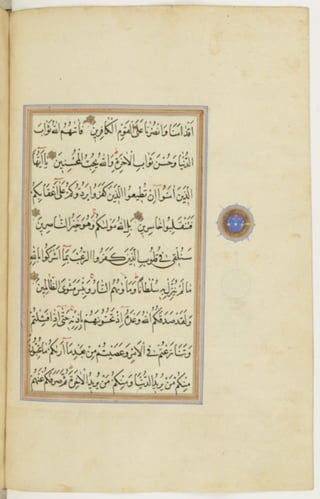 اقدامنا وانصرنا على القوم الكافرين فآتيهم الله ثواب
الدنيا وحسن ثواب الآخرة والله يحب المحسنين يا أيها
الذين آمنوا إن تطيعوا الذين كفروا يردوكم على أعقابكم
فتنقلبوا خاسرين بل الله موليكم وهو خير الناصرين
سنلقي في قلوب الذين كفروا الرعب بما أشركوا بالله
ما لم ينزل به سلطانا وماويهم النار وبئس مثوى الظالمين
ولقد صدقكم الله وعده إذ تحسونهم بإذنه حتى إذا فشلتم
وتنازعتم في الأمر وعصيتم من بعد ما أريكم ما تحبون
منكم من يريد الدنيا ومنكم من يريد الآخرة ثم صرفكم عنهم